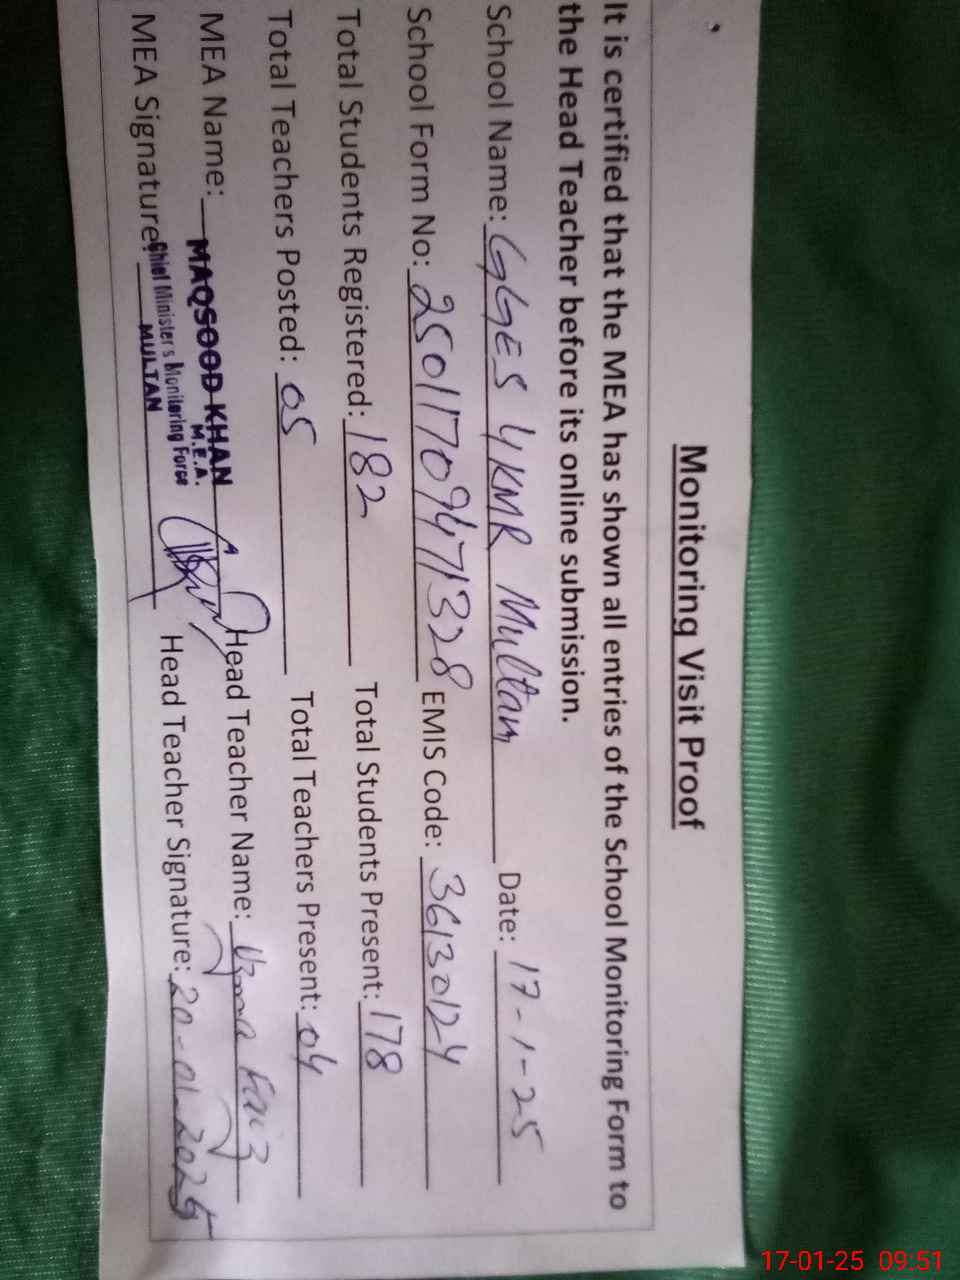 Monitoring Visit Proof
It is certified that the MEA has shown all entries of the School Monitoring Form to
the Head Teacher before its online submission.
School Name: GGES 4KMR Multan Date: 17-1-25
School Form No: 25011709471328 EMIS Code: 36130124
Total Students Registered: 182 Total Students Present: 178
Total Teachers Posted: 05 Total Teachers Present: 04
MEA Name: MAQSOOD KHAN Head Teacher Name: Uzma Faiz
M.E.A.
Chief Minister's Monitoring Force
MEA Signature: MULTAN Head Teacher Signature: 20-01-2025
17-01-25 09:51